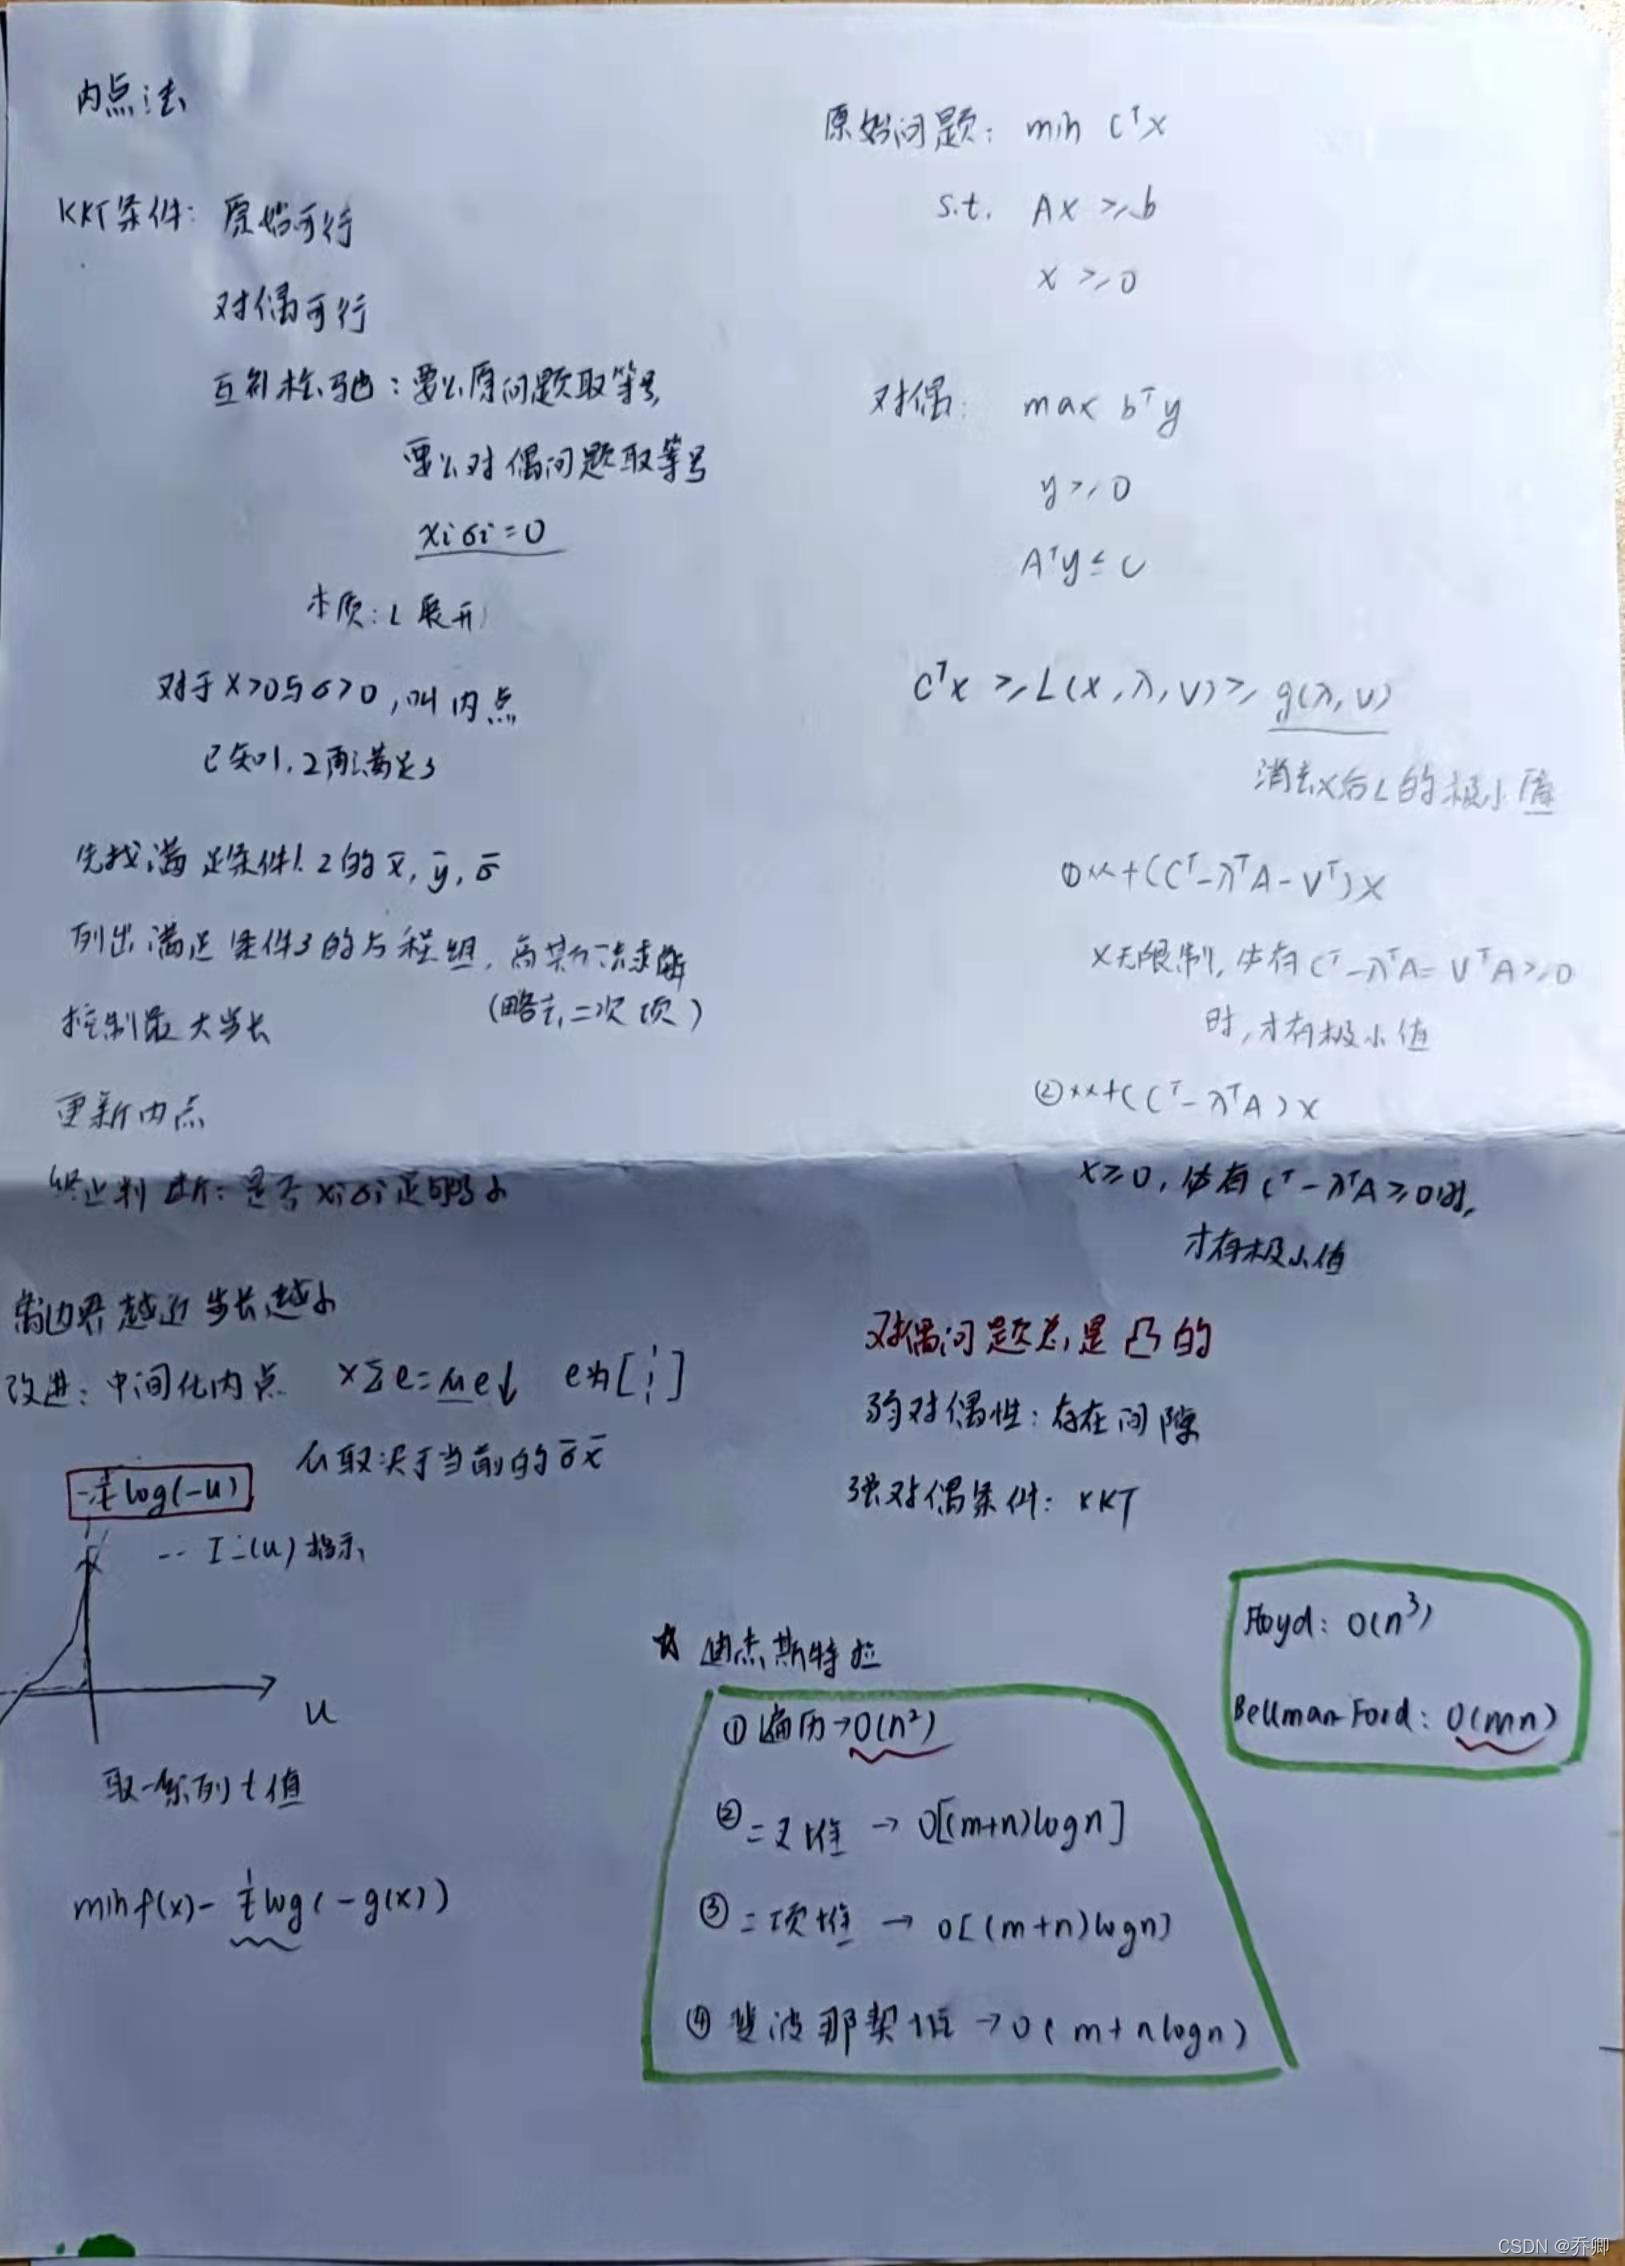 内点法
KKT条件: 原始可行
对偶可行
互补松弛: 要么原问题取等号,
要么对偶问题取等号
xiσi=0
本质: L展开
对于x>0与σ>0, 叫内点
已知1, 2再满足3
先找满足条件1. 2的x̄, ȳ, σ̄
列出满足条件3的方程组, 高斯法求解
(略去二次项)
控制最大步长
更新内点
终止判断: 是否xiσi足够小
离边界越近步长越小
改进: 中间化内点 XΣe=μe↓ e为[1 ⋮ 1]
μ取决于当前的σ̄x̄
-1/t log(-u)
-- I-(u)指示
u
取一系列t值
min f(x)- 1/t log(-g(x))
原始问题: min CᵀX
s.t. AX ≥ b
X ≥ 0
对偶: max bᵀy
y ≥ 0
Aᵀy ≤ C
Cᵀx ≥ L(x, λ, v) ≥ g(λ, v)
消去x后L的极小值
①××+(Cᵀ-λᵀA-Vᵀ)X
X无限制, 仅有Cᵀ-λᵀA=VᵀA≥0
时, 才有极小值
②××+(Cᵀ-λᵀA)X
X≥0, 仅有Cᵀ-λᵀA≥0时,
才有极小值
对偶问题总是凸的
弱对偶性: 存在间隙
强对偶条件: KKT
☆ 迪杰斯特拉
①遍历→O(n²)
②二叉堆 → O[(m+n)logn]
③二项堆 → O[(m+n)logn]
④斐波那契堆→O(m+nlogn)
Floyd: O(n³)
Bellman-Ford: O(mn)
CSDN @乔卿